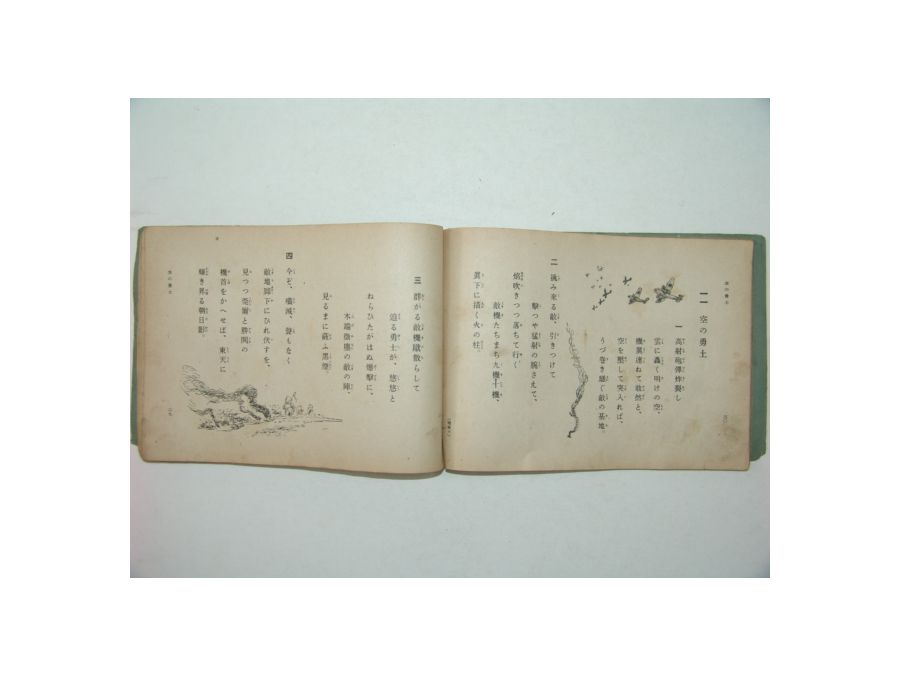 一一 空の勇士
一 高射砲彈炸裂し
雲に轟く明けの空、
機翼連ねて敢然と、
空を壓して突入れば、
うづ巻き騷ぐ敵の基地。
二 挑み來る敵、引きつけて
撃つや猛射の腕さえて、
焰吹きつつ落ちて行く
敵機たちまち九機十機、
翼下に描く火の柱。
三 群がる敵機蹴散らして
迫る勇士が、悠悠と
ねらひたがはぬ爆撃に、
木端微塵の敵の陣、
見るまに蔽ふ黑煙。
四 今ぞ、殲滅、聲もなく
敵地脚下にひれ伏すを、
見つつ莞爾と勝鬨の
機首をかへせば、東天に
輝き昇る朝日影。
空の勇士